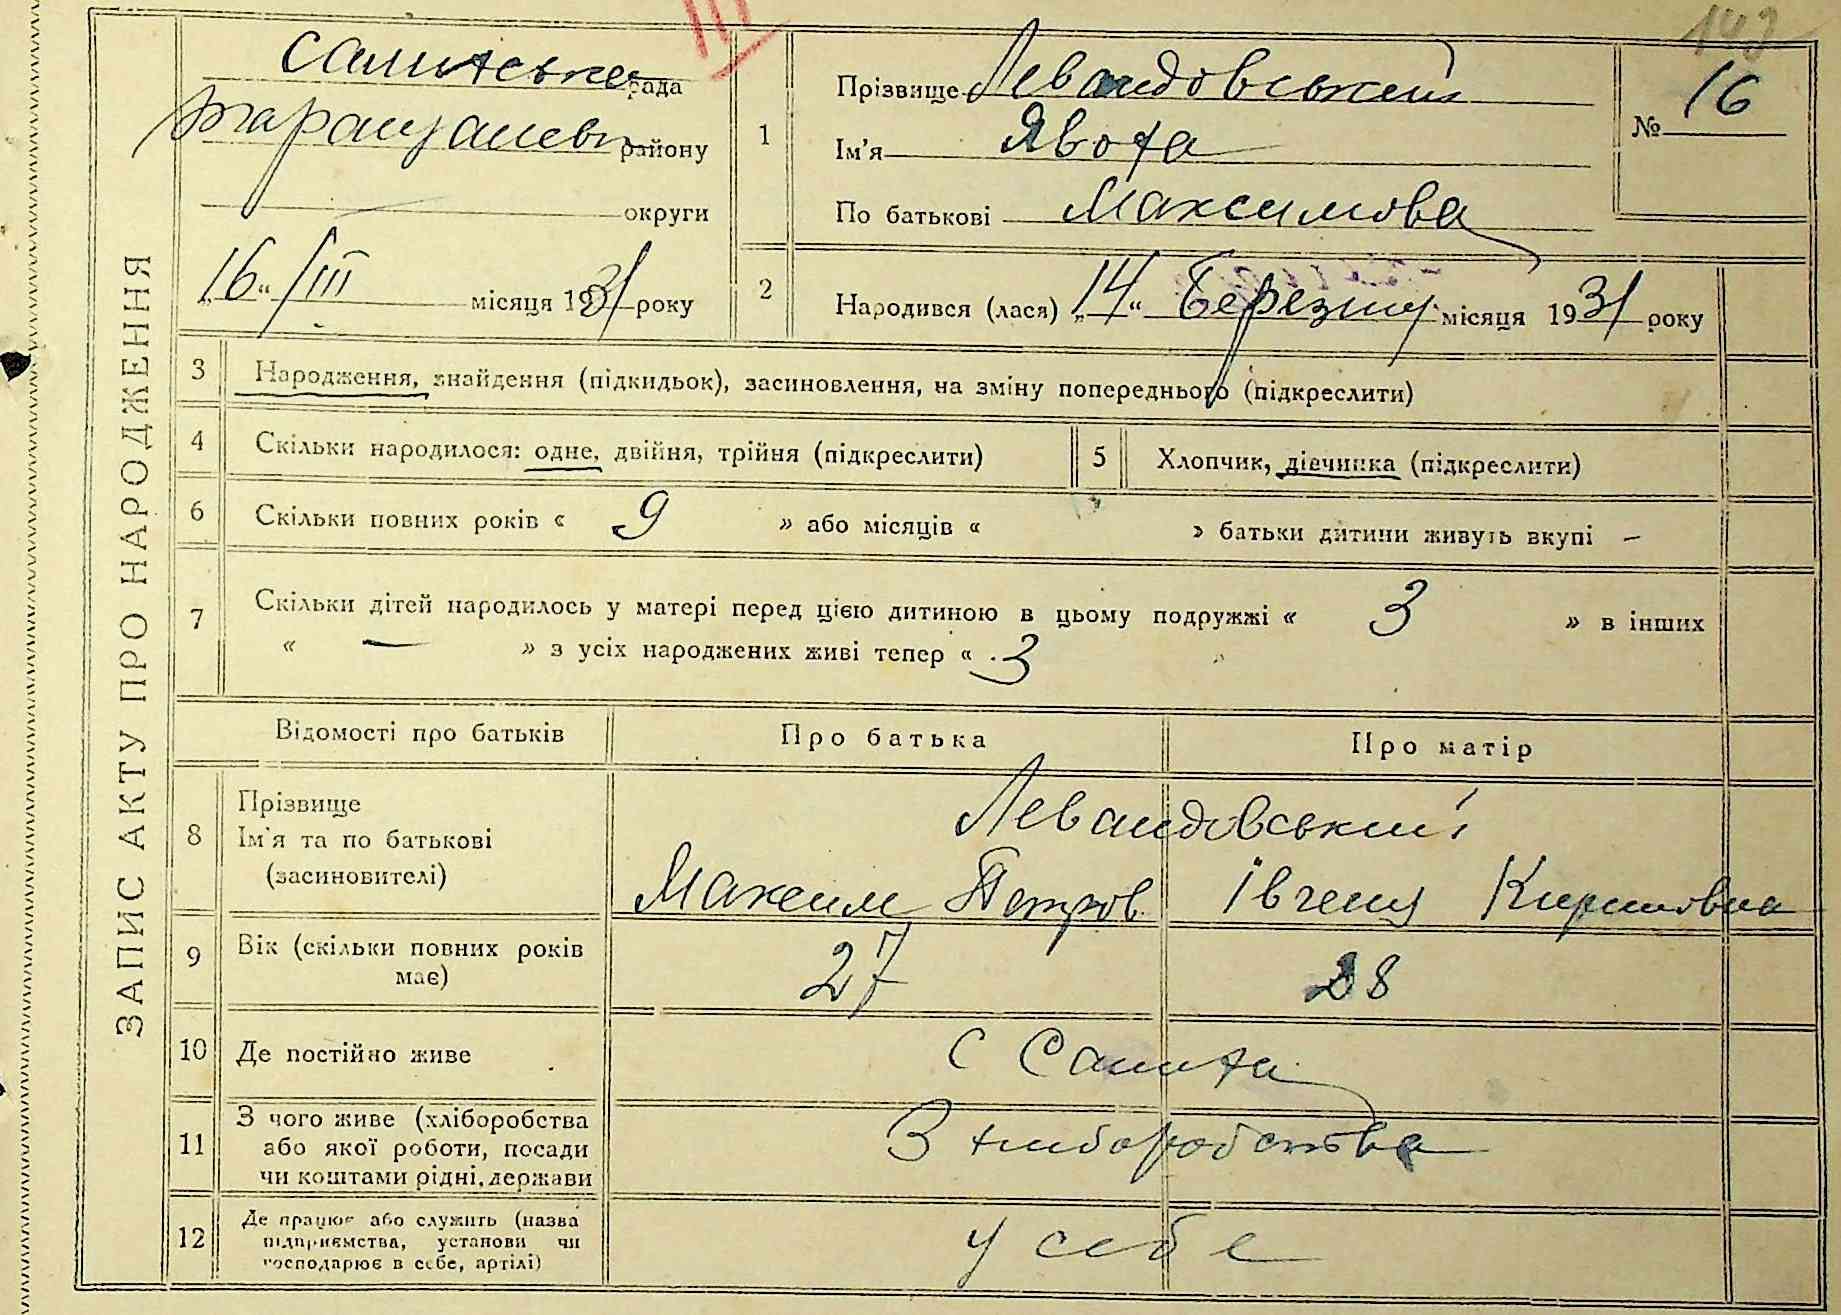 142
Салихська рада
Таращанськ району
округи
„16“ /III місяця 1931 року
1
Прізвище Левандовський
Ім'я Явоха
По батькові Максимова
№ 16
2
Народився (лася) „14“ Березня місяця 1931 року
ЗАПИС АКТУ ПРО НАРОДЖЕННЯ
3 Народження, знайдення (підкидьок), засиновлення, на зміну попереднього (підкреслити)
4 Скільки народилося: одне, двійня, трійня (підкреслити)
5 Хлопчик, дівчинка (підкреслити)
6 Скільки повних років « 9 » або місяців « » батьки дитини живуть вкупі –
7 Скільки дітей народилось у матері перед цією дитиною в цьому подружжі « 3 » в інших
« — » з усіх народжених живі тепер « 3 »
Відомості про батьків Про батька Про матір
8 Прізвище Левандовський
Ім'я та по батькові
(засиновителі) Максим Петров Івгену Кириловна
9 Вік (скільки повних років
має) 27 28
10 Де постійно живе с Салиха
11 З чого живе (хліборобства
або якої роботи, посади
чи коштами рідні, держави З хліборобства
12 Де працює або служить (назва
підприємства, установи чи
господарює в себе, артілі) у себе